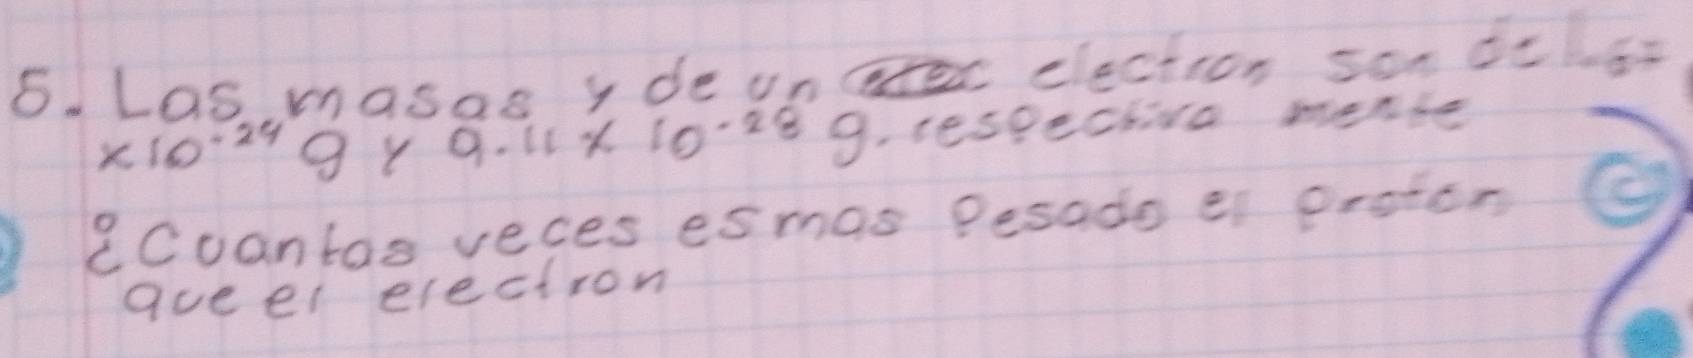 5. Las masas y de un electron son de 1.67
x10-24 g y 9.11 x 10-28 g. respectiva mente
¿Cuantas veces es mas pesado el proton
que el electron